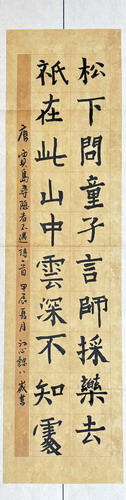 松下問童子言師採藥去
祇在此山中雲深不知處
唐賈島尋隱者不遇詩一首甲辰夏月江心八歲書